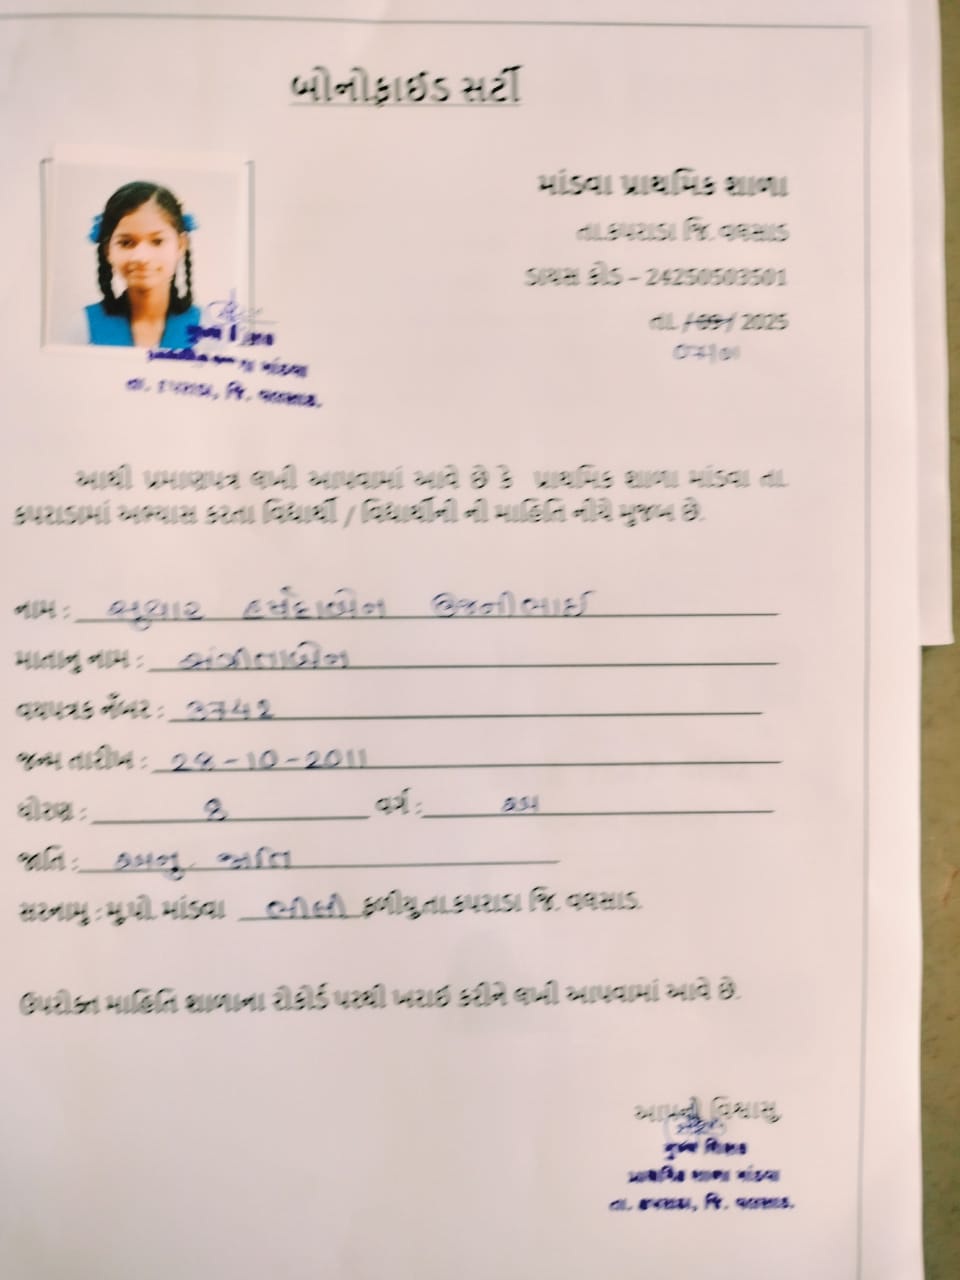 બોનોફાઈડ સર્ટી
માંડવા પ્રાથમિક શાળા
તા.કપરાડા જિ. વલસાડ
ડાયસ કોડ - 24250503501
તા. /09/ 2025
તા. કપરાડા, જિ. વલસાડ.
આથી પ્રમાણપત્ર લખી આપવામાં આવે છે કે પ્રાથમિક શાળા માંડવા તા.
કપરાડામાં અભ્યાસ કરતા વિદ્યાર્થી / વિદ્યાર્થીની ની માહિતિ નીચે મુજબ છે.
નામ :
માતાનુ નામ :
વયપત્રક નંબર : 3742
જન્મ તારીખ : 28-10-2011
ધોરણ : 8 વર્ગ :
જાતિ : અનુ. જાતિ
સરનામુ : મુ.પો. માંડવા ભીલી ફળીયુ.તા.કપરાડા જિ. વલસાડ.
ઉપરોક્ત માહિતિ શાળાના રેકોર્ડ પરથી ખરાઈ કરીને લખી આપવામાં આવે છે.
આપનો વિશ્વાસુ
મુખ્ય શિક્ષક
પ્રાથમિક શાળા માંડવા
તા. કપરાડા, જિ. વલસાડ.